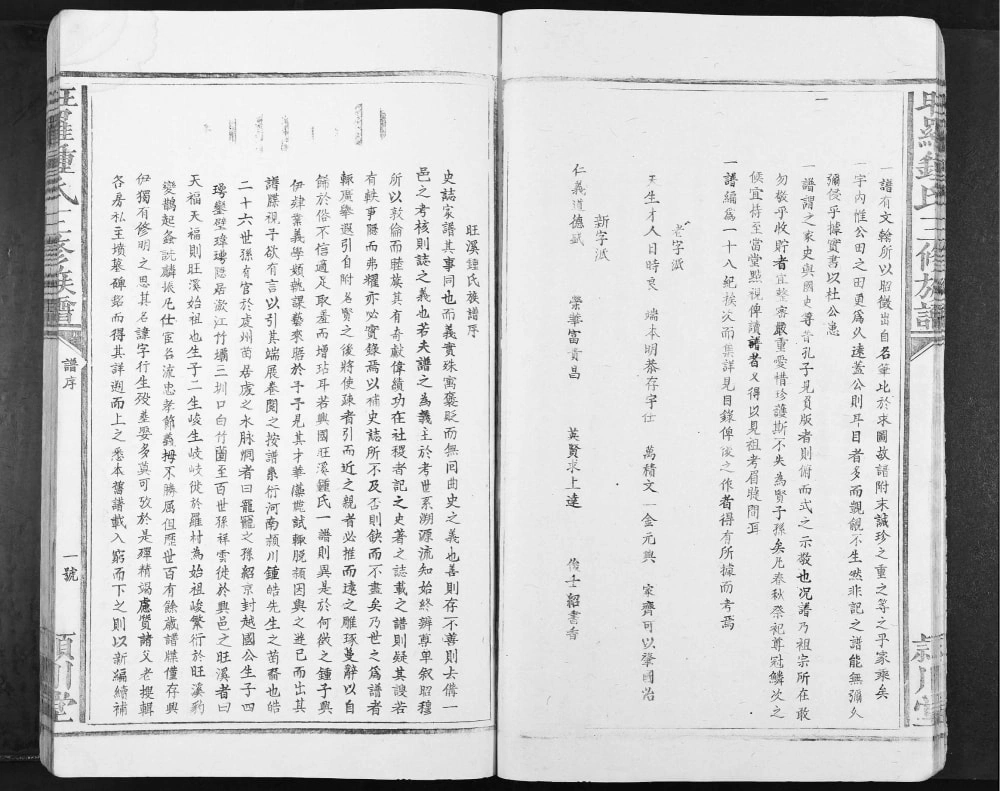 一譜有文翰所以昭徵出自名筆比於宋圖故譜附末誠珍之重之等之乎家乘矣
一字內惟公田之田更為久遠蓋公則耳目者多而覬覦不生然非記之譜能無彌久
彌侵乎據實書以杜公患
一譜謂之家史與國史尊昔孔子見負版者則俯而式之示敬也况譜乃祖宗所在敢
勿敬乎收貯者宜整密嚴重愛惜珍護斯不失為賢子孫矣凡春秋祭祀尊冠鱗次之
候宜侍至當堂點視俾讀譜者又得以見祖考眉睫間耳
一譜編為一十八紀挨次而集詳見目錄俾後之作者得有所據而考焉
老字派
天生才人日時良 端本明恭存字仕 萬積文一金元興 家齊可以肇國治
新字派
仁義道德斌 榮華富貴昌 英賢求上達 俊士紹書香
旺羅鍾氏三修族譜
頴川堂
旺溪鍾氏族譜序
史誌家譜其事同也而義實殊寓褒貶而無囘曲史之義也善則存不善則去僃一
邑之考核則誌之義也若夫譜之為義主於考世系溯源流知始終辨尊卑叙昭穆
所以敦倫而睦族其有奇猷偉績功在社稷者記之史著之誌載之譜則疑其諛若
有軼事隱而弗耀亦必實錄焉以補史誌所不及否則缺而不盡矣乃世之為譜者
輒廣舉遐引自附名賢之後將使疎者引而近之親者必推而遠之雕琢蔓辭以自
餙於俗不信適足取羞而增玷耳若興國旺溪鍾氏一譜則異是於何徵之鍾子興
伊肄業義學頻執課藝來謁於予予見其才華藻麗試輒脫頴因與之遊已而出其
譜牒視予欲有言以引其端展卷閱之按譜系衍河南頴川鍾皓先生之苗裔也皓
二十六世孫有官於虔州苗居虔之水脉㘭者曰寵寵之孫紹京封越國公生子四
天福天福則旺溪始祖也生子二生峻生岐岐徙於羅村為始祖峻繁衍於旺溪豹
各房私至墳墓碑銘而得其詳遡而上之悉本舊譜載入窮而下之則以新編續補
旺羅鍾氏三修族譜
譜序
一號
頴川堂